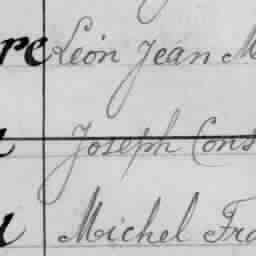 re Léon Jean M
Joseph Cons
Michel Fra